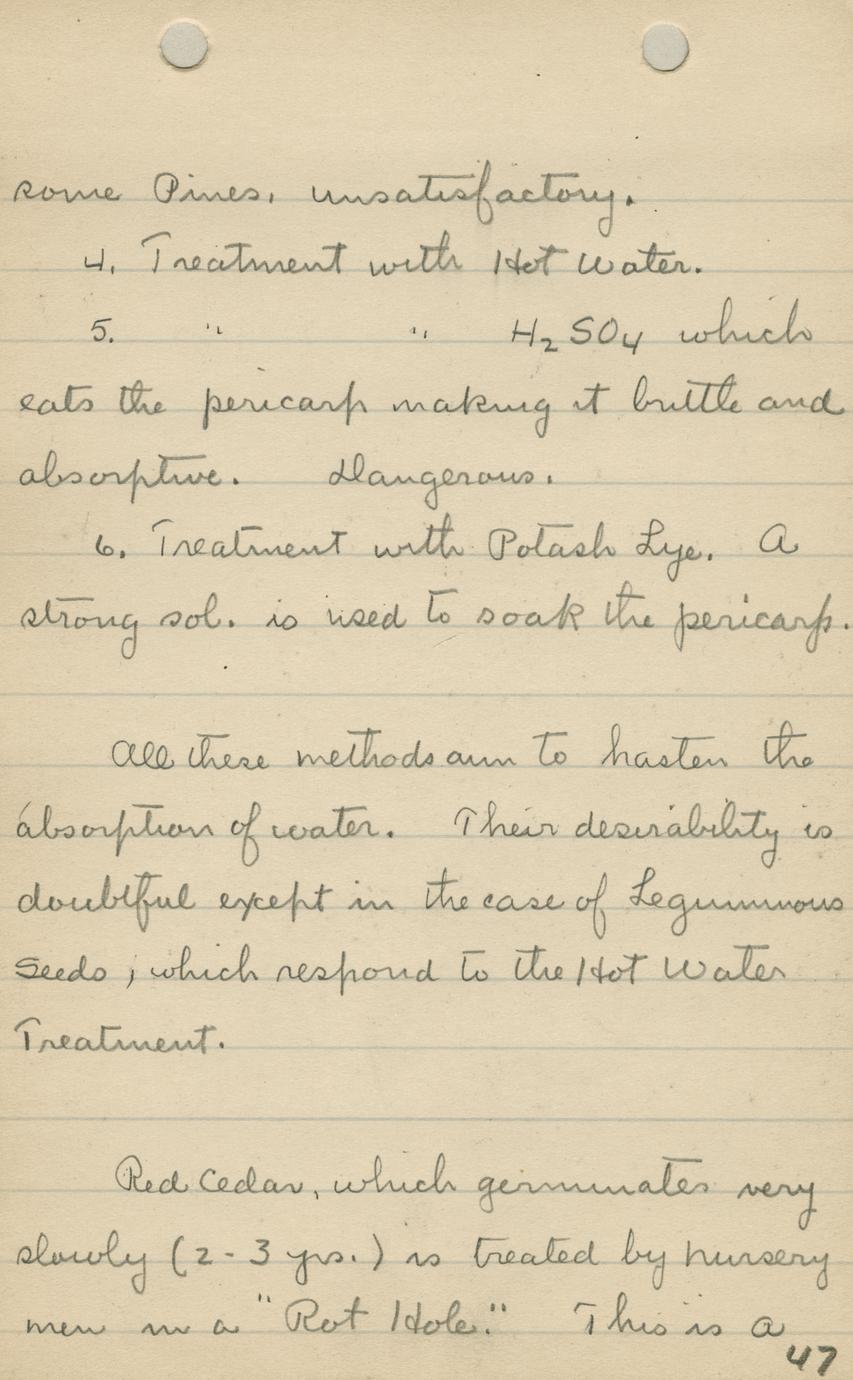 some Pines, unsatisfactory.
4. Treatment with Hot Water.
5. " " H2SO4 which
eats the pericarp making it brittle and
absorptive. Dangerous.
6. Treatment with Potash Lye. A
strong sol. is used to soak the pericarp.
All these methods aim to hasten the
absorption of water. Their desirability is
doubtful except in the case of Leguminous
Seeds, which respond to the Hot Water
Treatment.
Red Cedar, which germinates very
slowly (2-3 yrs.) is treated by nursery
men in a "Rot Hole." This is a
47